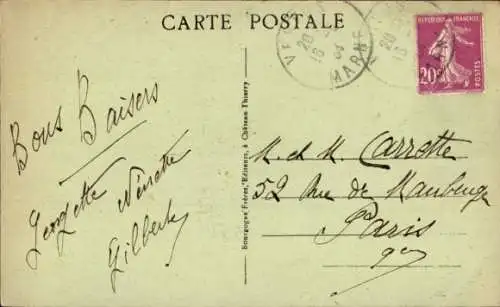 CARTE POSTALE
MARNE
20
18
REPUBLIQUE FRANÇAISE
20c
POSTES
Bons Baisers
Georgette Nénette
Gilberte
Bourgogne Frères, Editeurs, à Château-Thierry
M. et M. Carrotte
52 Rue de Maubeuge
Paris
9e